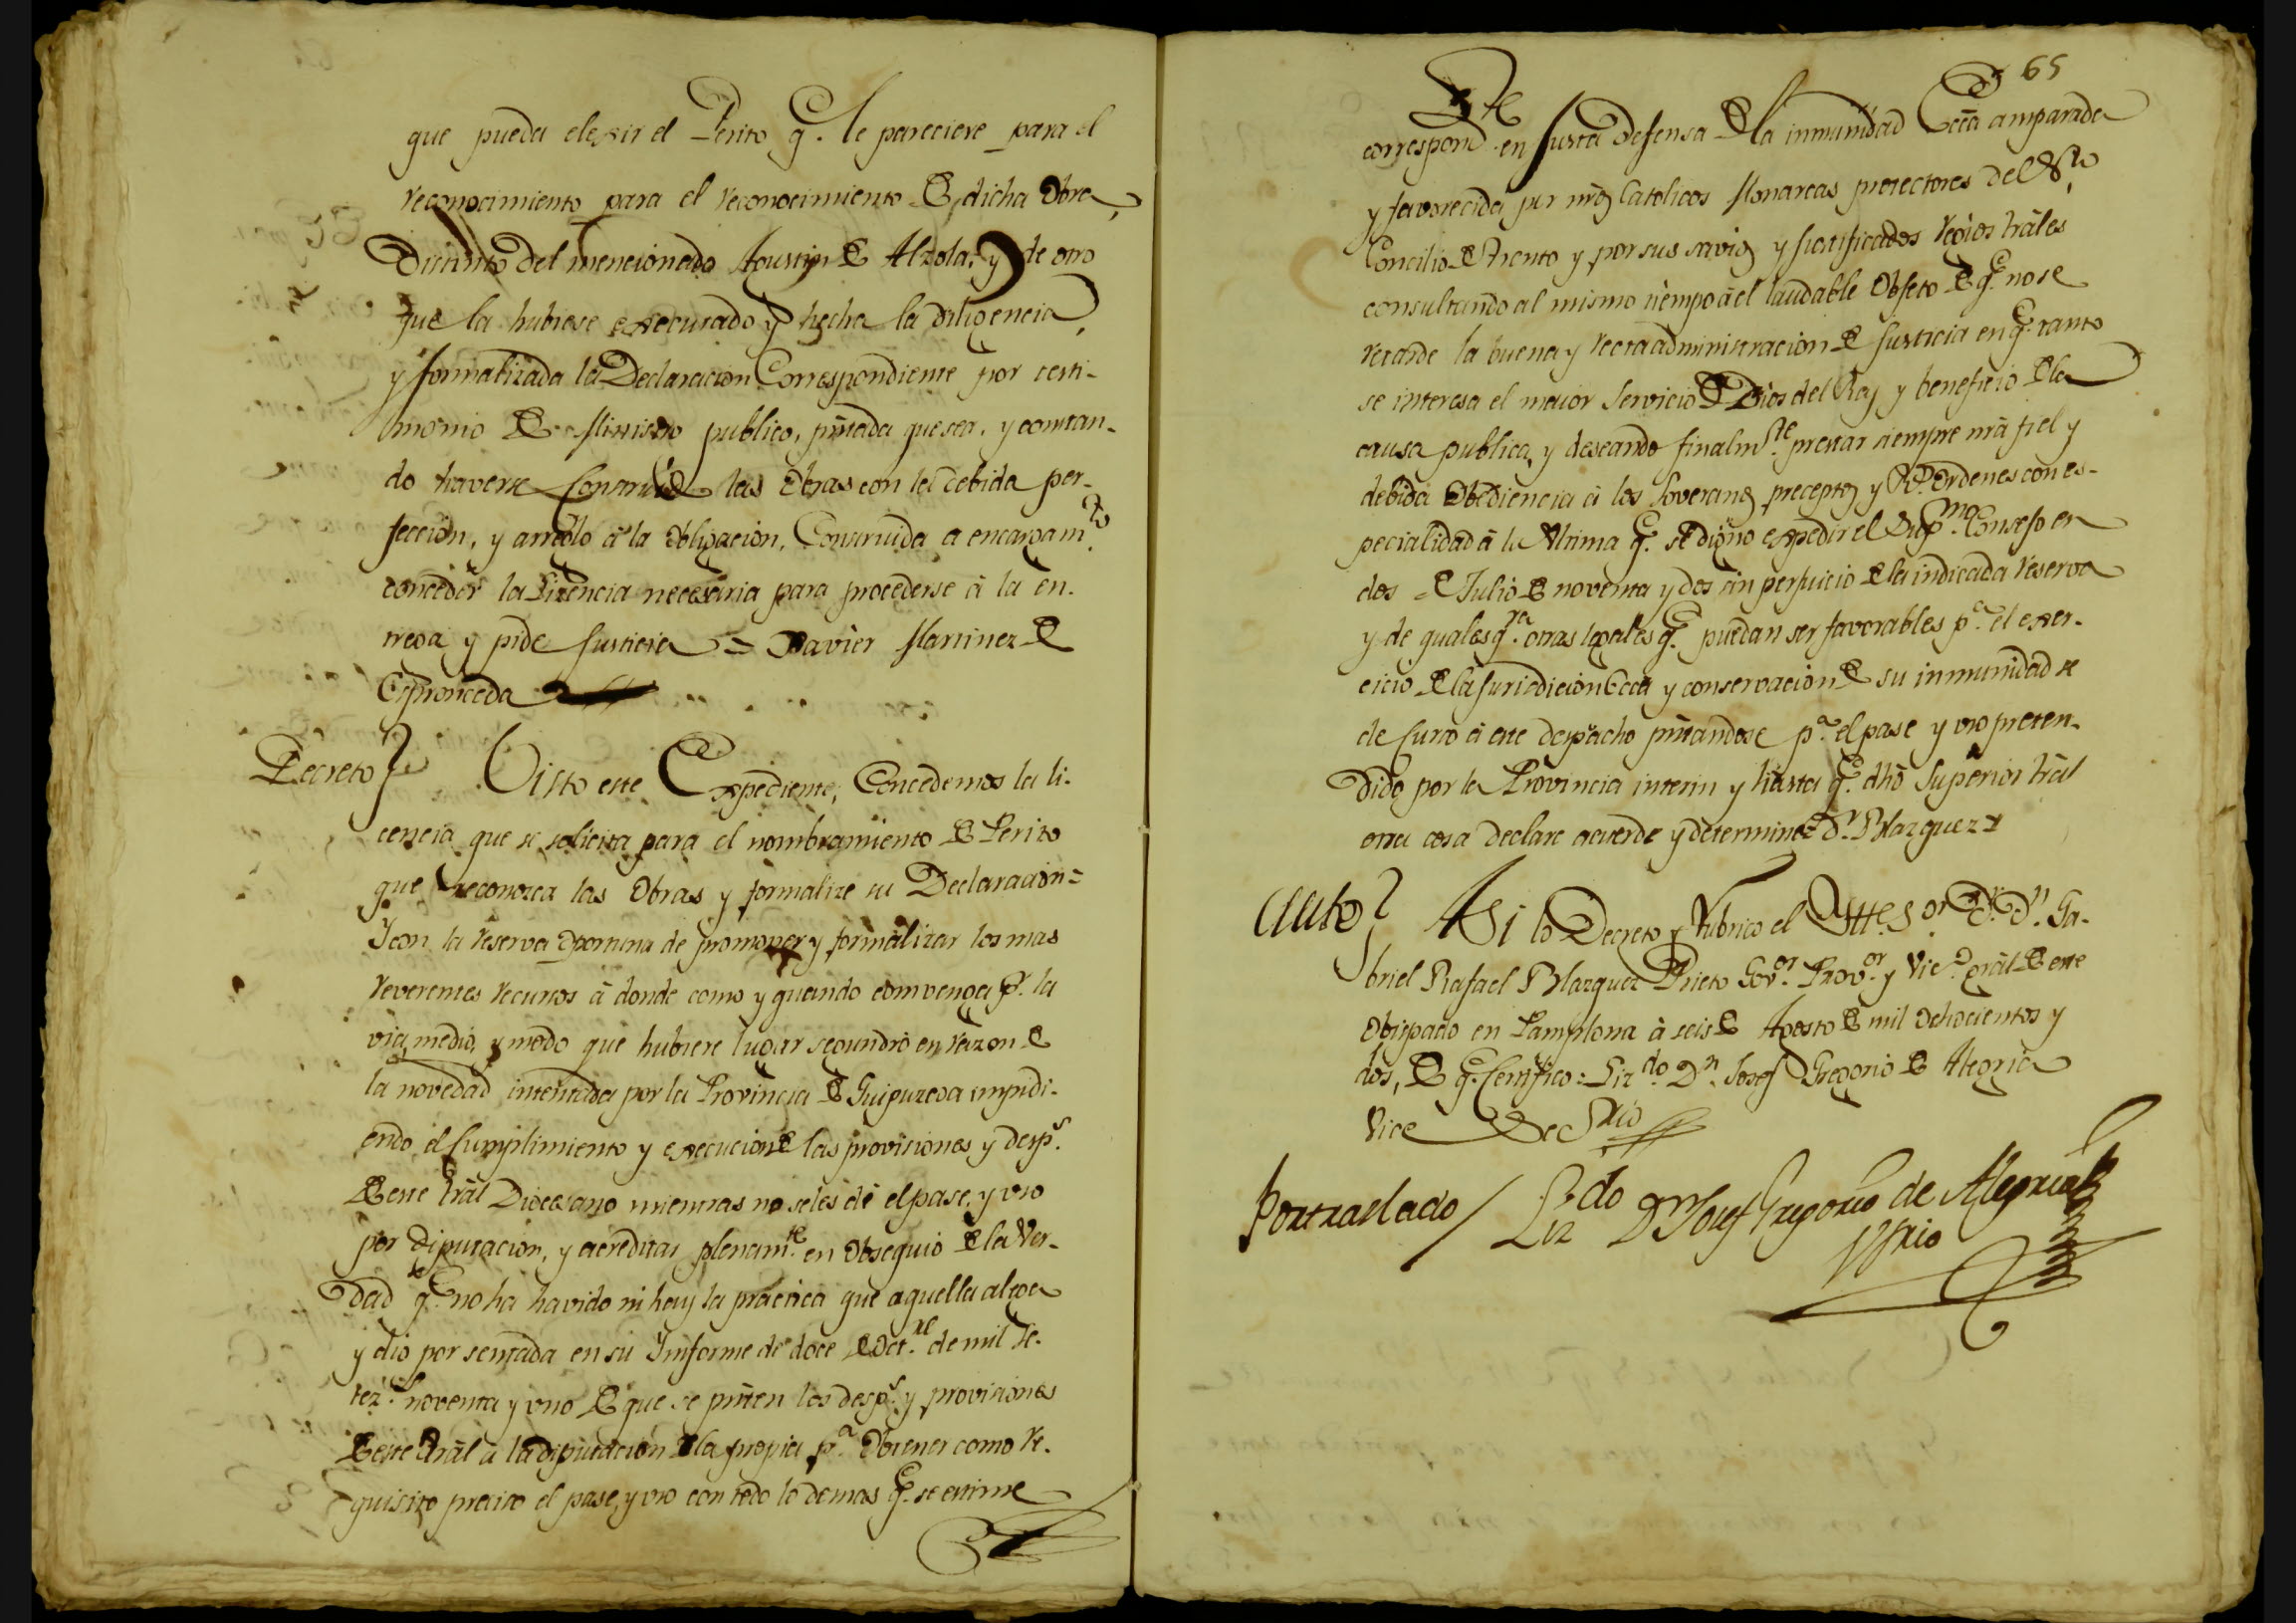 que pueda elexir el Perito q.e le pareciere para el
reconocimiento para el reconocimiento de dicha Obra,
Distinto del mencionado Agustin de Alzola, y de otro
que la hubiese executado y hecha la diligencia,
y formalizada la Declaracion Correspondiente por testi-
monio de Ministro publico, pñtada que sea, y constan-
do haverse Construido las Obras con la debida per-
feccion, y arreglo â la obligacion, Construida a encargam.to
conceder la Lizencia necesaria para procederse â la en-
trega y pide Justicia = Xavier Martinez de
Espronceda
Decreto Visto este Expediente, Concedemos la li-
cencia que se solicita para el nombramiento de Perito
que reconozca las Obras y formalize su Declaracion =
Y con la reserva Oportuna de promover y formalizar los mas
reverentes recursos â donde como y quando combenga p.r la
via, medio, y modo que hubiere lugar segun dro en razon de
la novedad intentada por la Provincia de Guipuzcoa impidi-
endo el Cumplimiento y execucion de las provisiones y desp.s
de este trâl Diocesano mientras no seles dê el pase, y vso
por Diputacion, y acreditar plenam.te en Obsequio de la Ver-
dad q.e no ha havido ni hay la practica que aquella alega
y dio por sentada en su Ynforme de doce de Oct.re de mil Se-
tez.s noventa y vno de que se pñten los desp.s y provisiones
de este trâl a la diputacion de la propia p.a Obtener como re-
quisito preciso el pase, y vso con todo lo demas q.e se estime
65
correspond.te en Justa Defensa de la inmunidad Ecca amparada
y favorecida por nrõs Catolicos Monarcas protectores del S.to
Concilio de Trento y por sus savios y Justificados regios trâles
consultando al mismo tiempo â el laudable Objeto de q.e no se
retarde la buena y recta administracion de Justicia en q.e tanto
se interesa el maior Servicio de Dios del Rey y beneficio de la
causa publica, y deseando finalm.te prestar siempre nrâ fiel y
debida Obediencia â los Soveranos preceptos y R.s Ordenes con es-
pecialidad â la Vltima q.e se digno expedir el Sup.mo Consejo en
dos de Julio de noventa y dos sin perjuicio de la indicada reserva
y de qualesq.ra otras legales q.e puedan ser favorables p.a el exer-
cicio de la Jurisdicion Ecca y conservacion de su inmunidad se
de Curso â este despacho pñtandose p.a el pase y vso preten-
dido por la Provincia interin y hasta q.e dhõ Superior trâl
otra cosa declare acuerde y determine = D.r Blazquez =
Auto Asi lo Decreto y rubrico el Ill.e S.or D.r D.n Ga-
briel Rafael Blazquez Prieto Gov.or Prov.or y Vic.o grâl de este
Obispado en Pamplona â seis de Agosto de mil Ochocientos y
dos, de q.e Certifico: Liz.do D.n Josef Gregorio de Alegria
Vice Secrio
Por traslado / Liz.do D.n Josef Gregorio de Alegria
V Srio